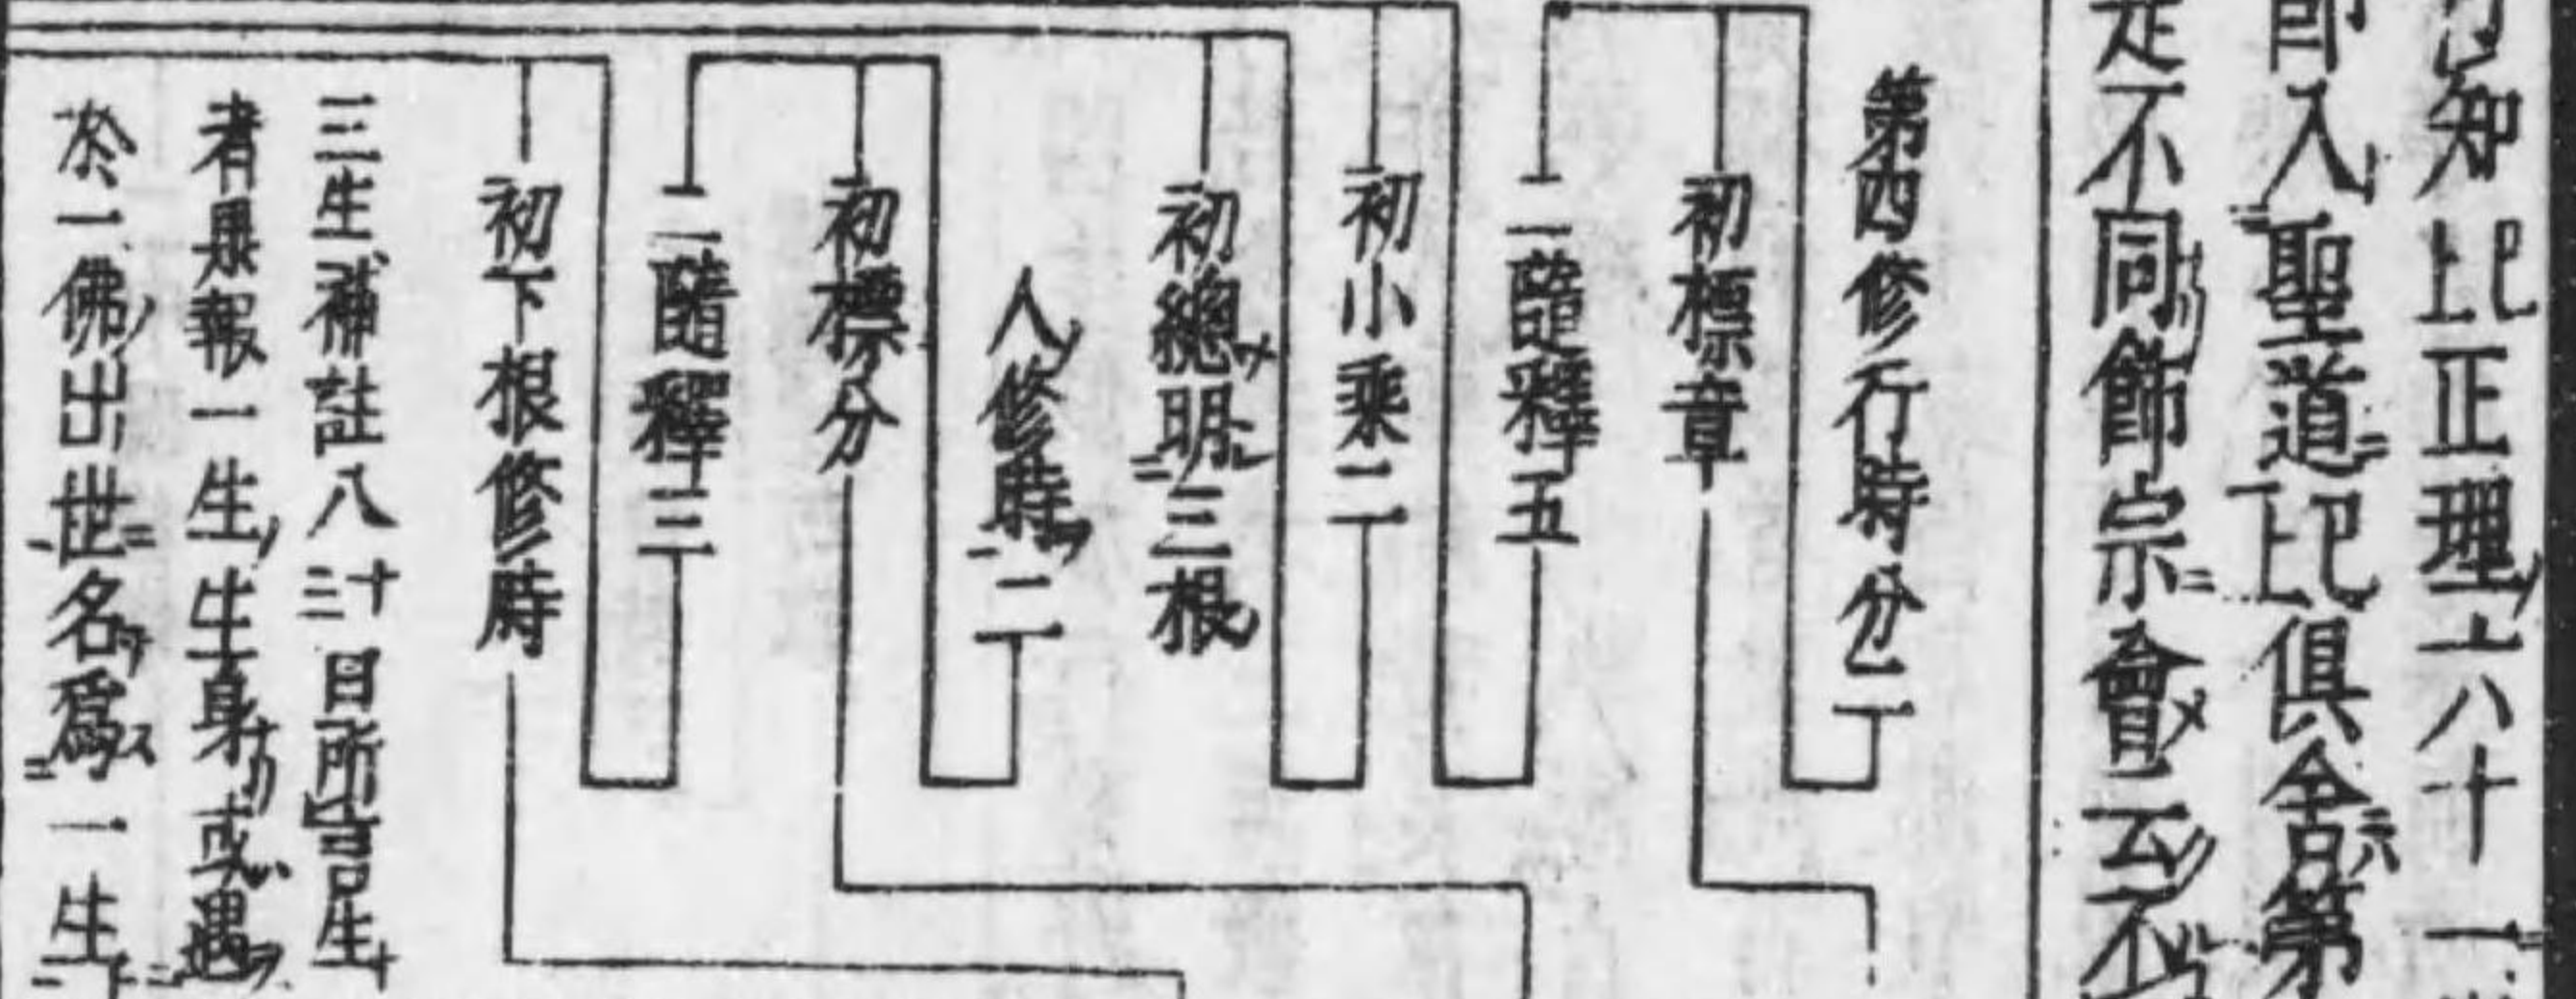 知比正理六十一
即入聖道比俱舍六第
是不同餙宗會云不
第四修行時分二
初標章
二隨釋五
初小乘二
初總明三根
人修時二
初標分
二隨釋三
初下根修時
三生補註八三十日所言生
者果報一生生身或遇
於一佛出世名爲一生